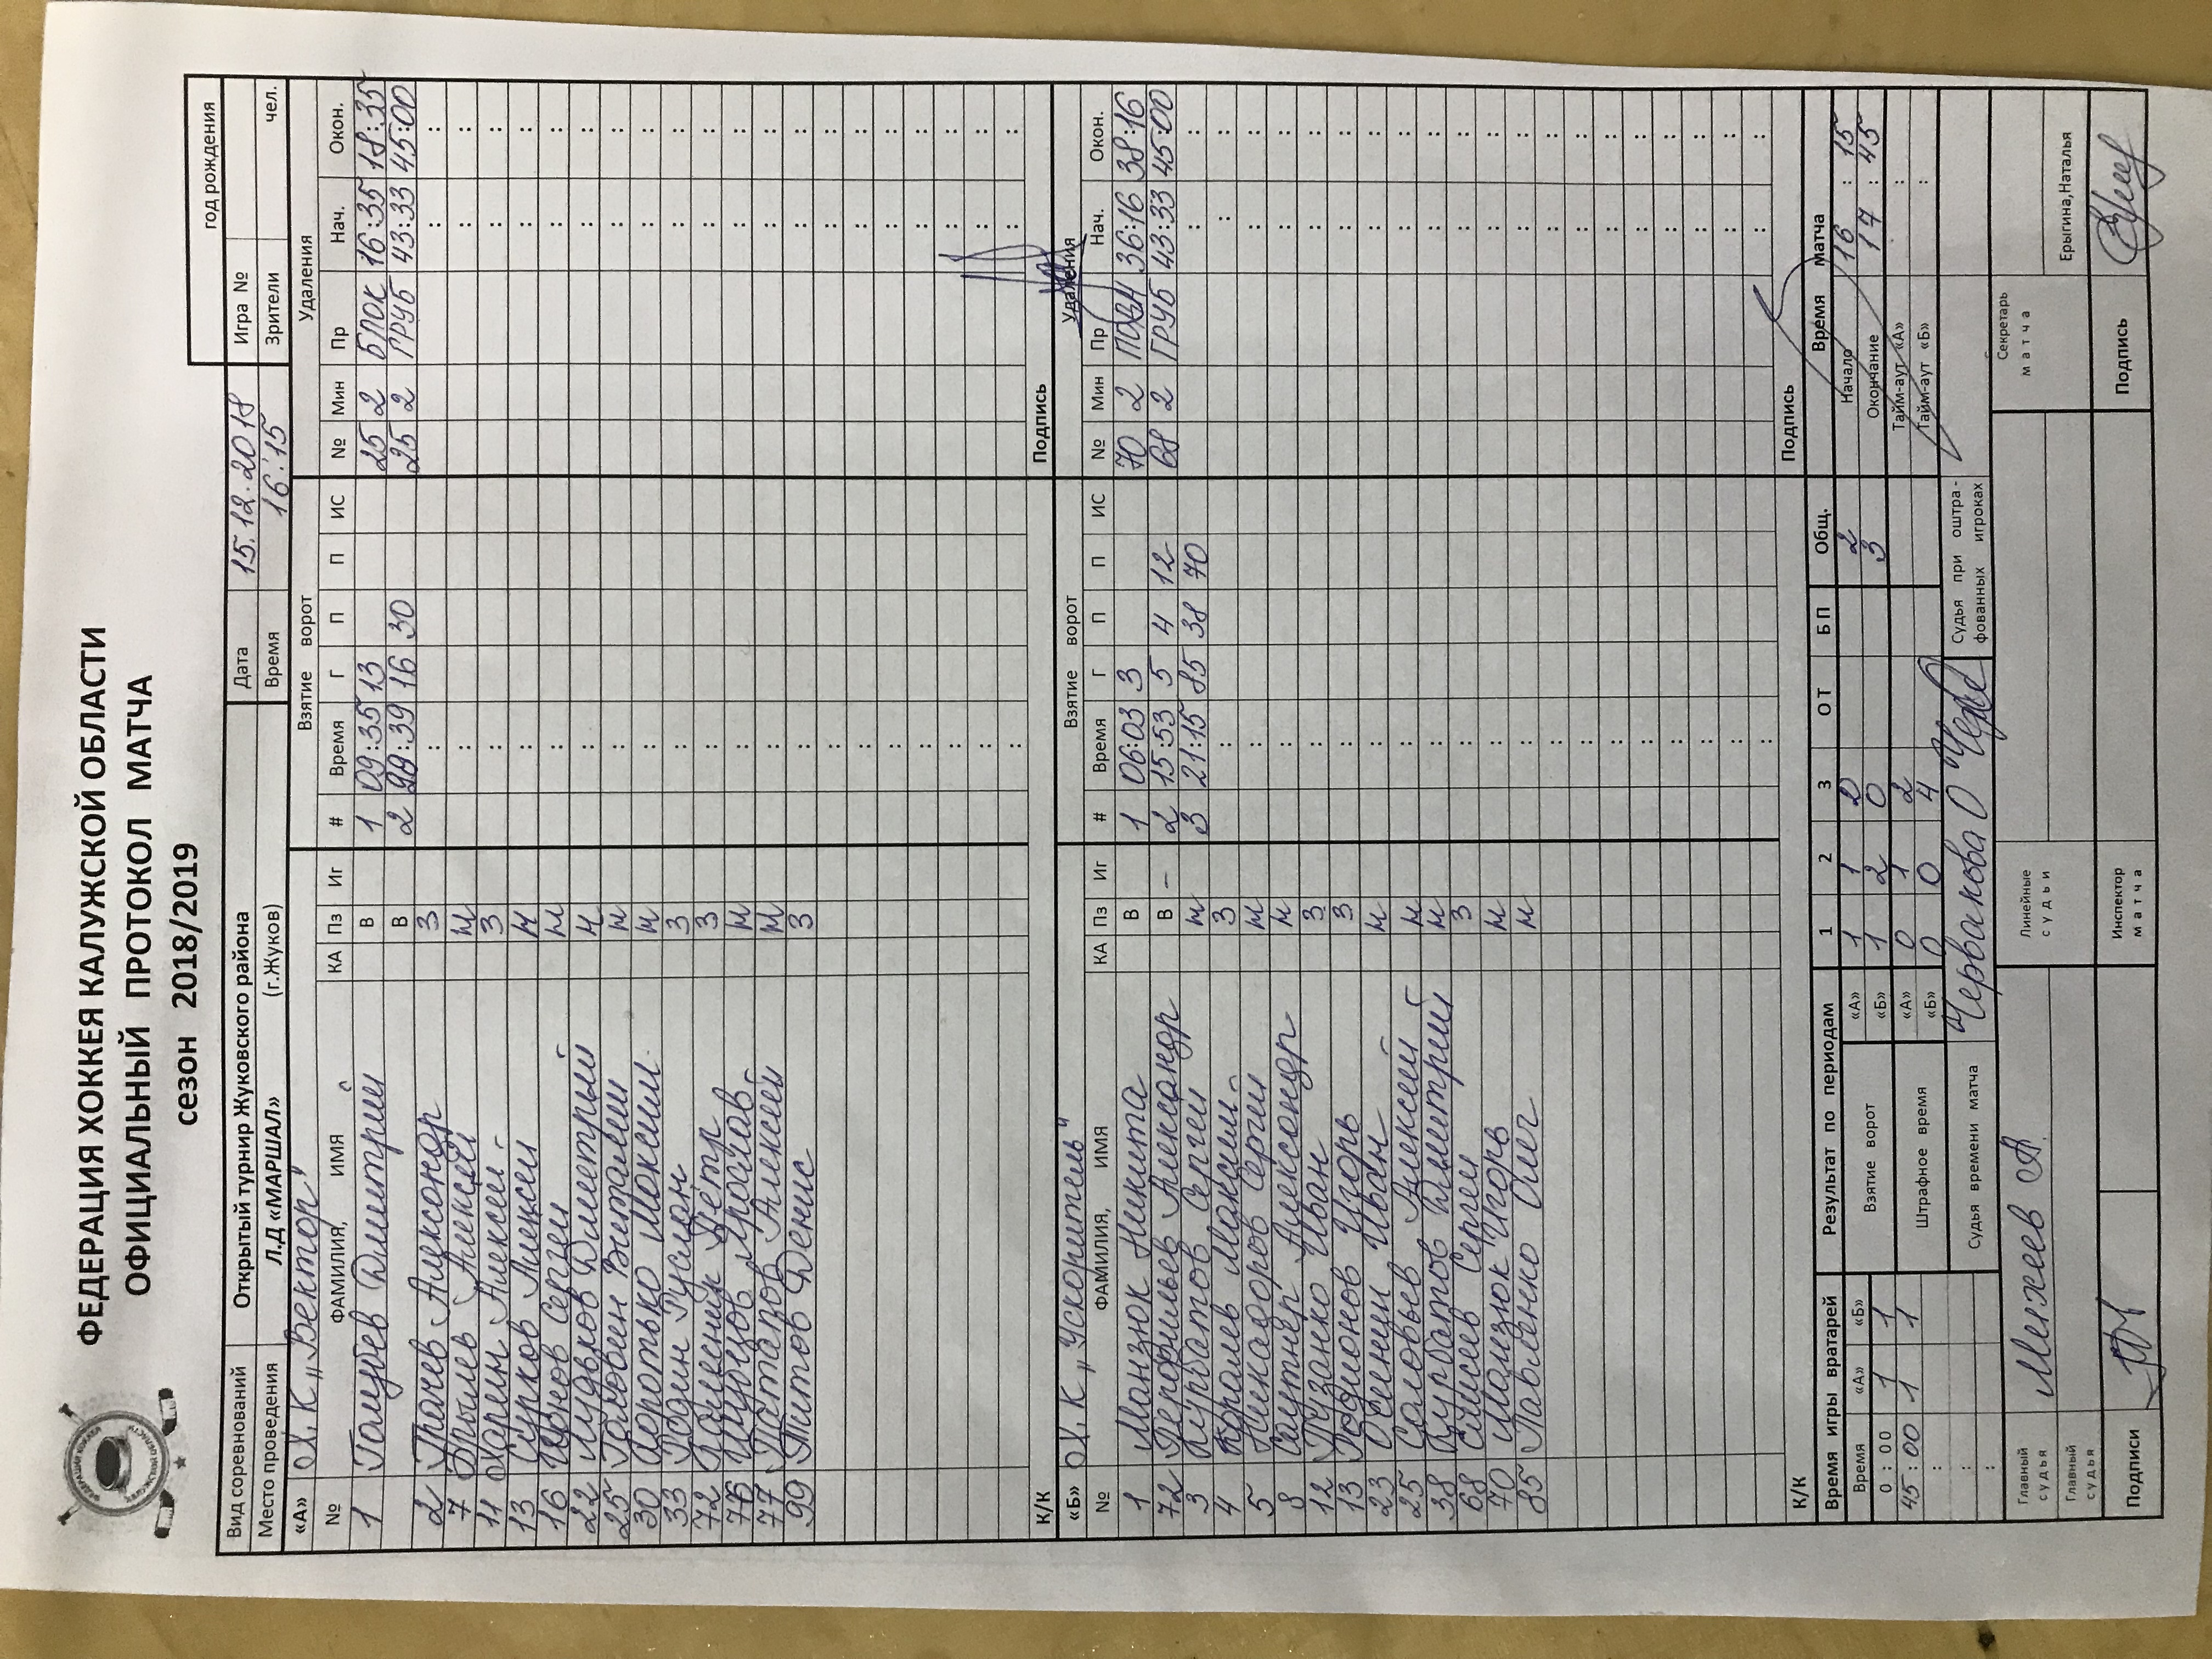 ФЕДЕРАЦИЯ ХОККЕЯ КАЛУЖСКОЙ ОБЛАСТИ
ОФИЦИАЛЬНЫЙ ПРОТОКОЛ МАТЧА
сезон 2018/2019
год рождения
Вид соревнований Открытый турнир Жуковского района Дата 15.12.2018 Игра №
Место проведения Л.Д «МАРШАЛ» (г.Жуков) Время 16:15 Зрители чел.
«А» Х.К „Вектор" Взятие ворот Удаления
№ ФАМИЛИЯ, ИМЯ КА Пз Иг # Время Г П П ИС № Мин Пр Нач. Окон.
1 Голубев Дмитрий В 1 09:35 13 25 2 БЛОК 16:35 18:35
В 2 39 16 30 25 2 ГРУБ 43:33 45:00
2 Грачев Александр З
7 Брылев Алексей Н
11 Харин Алексей З
13 Сурков Алексей Н
16 Сергей Н
22 Дмитрий Н
25 Головин Виталий Н
30 Коротько Максим Н
33 Родин Руслан З
72 Колесник Пётр З
76 Н
77 Потапов Алексей Н
99 Титов Денис З
К/К Подпись
«Б» Х.К „Ускоритель" Взятие ворот Удаления
№ ФАМИЛИЯ, ИМЯ КА Пз Иг # Время Г П П ИС № Мин Пр Нач. Окон.
1 Манзюк Никита В 1 06:03 3 70 2 36:16 38:16
72 Перфильев Александр В – 2 15:53 5 4 12 68 2 ГРУБ 43:33 45:00
3 Курбатов Сергей Н 3 21:15 85 38 70
4 Королев Максим З
5 Никадоров Сергей Н
8 Александр Н
12 Пузанко Иван З
13 Родионов Игорь З
23 Осенний Иван Н
25 Соловьев Алексей Н
38 Курбатов Дмитрий Н
68 Сергей З
70 Манзюк Игорь Н
85 Павленко Олег Н
К/К Подпись
Время игры вратарей Результат по периодам 1 2 3 ОТ БП Общ. Время матча
Время «А» «Б» Взятие ворот «А» 1 1 2 2 Начало 16 : 15
0 : 00 1 1 «Б» 1 2 0 3 Окончание 17 : 45
45 : 00 1 1 Штрафное время «А» 0 1 2 Тайм-аут «А» :
: «Б» 0 0 4 Тайм-аут «Б» :
: Судья времени матча Червакова О Судья при оштра-фованных игроках
Главный судья Михеев А. Линейные судьи Секретарь матча
Главный судья Ерыгина,Наталья
Подписи Инспектор матча Подпись